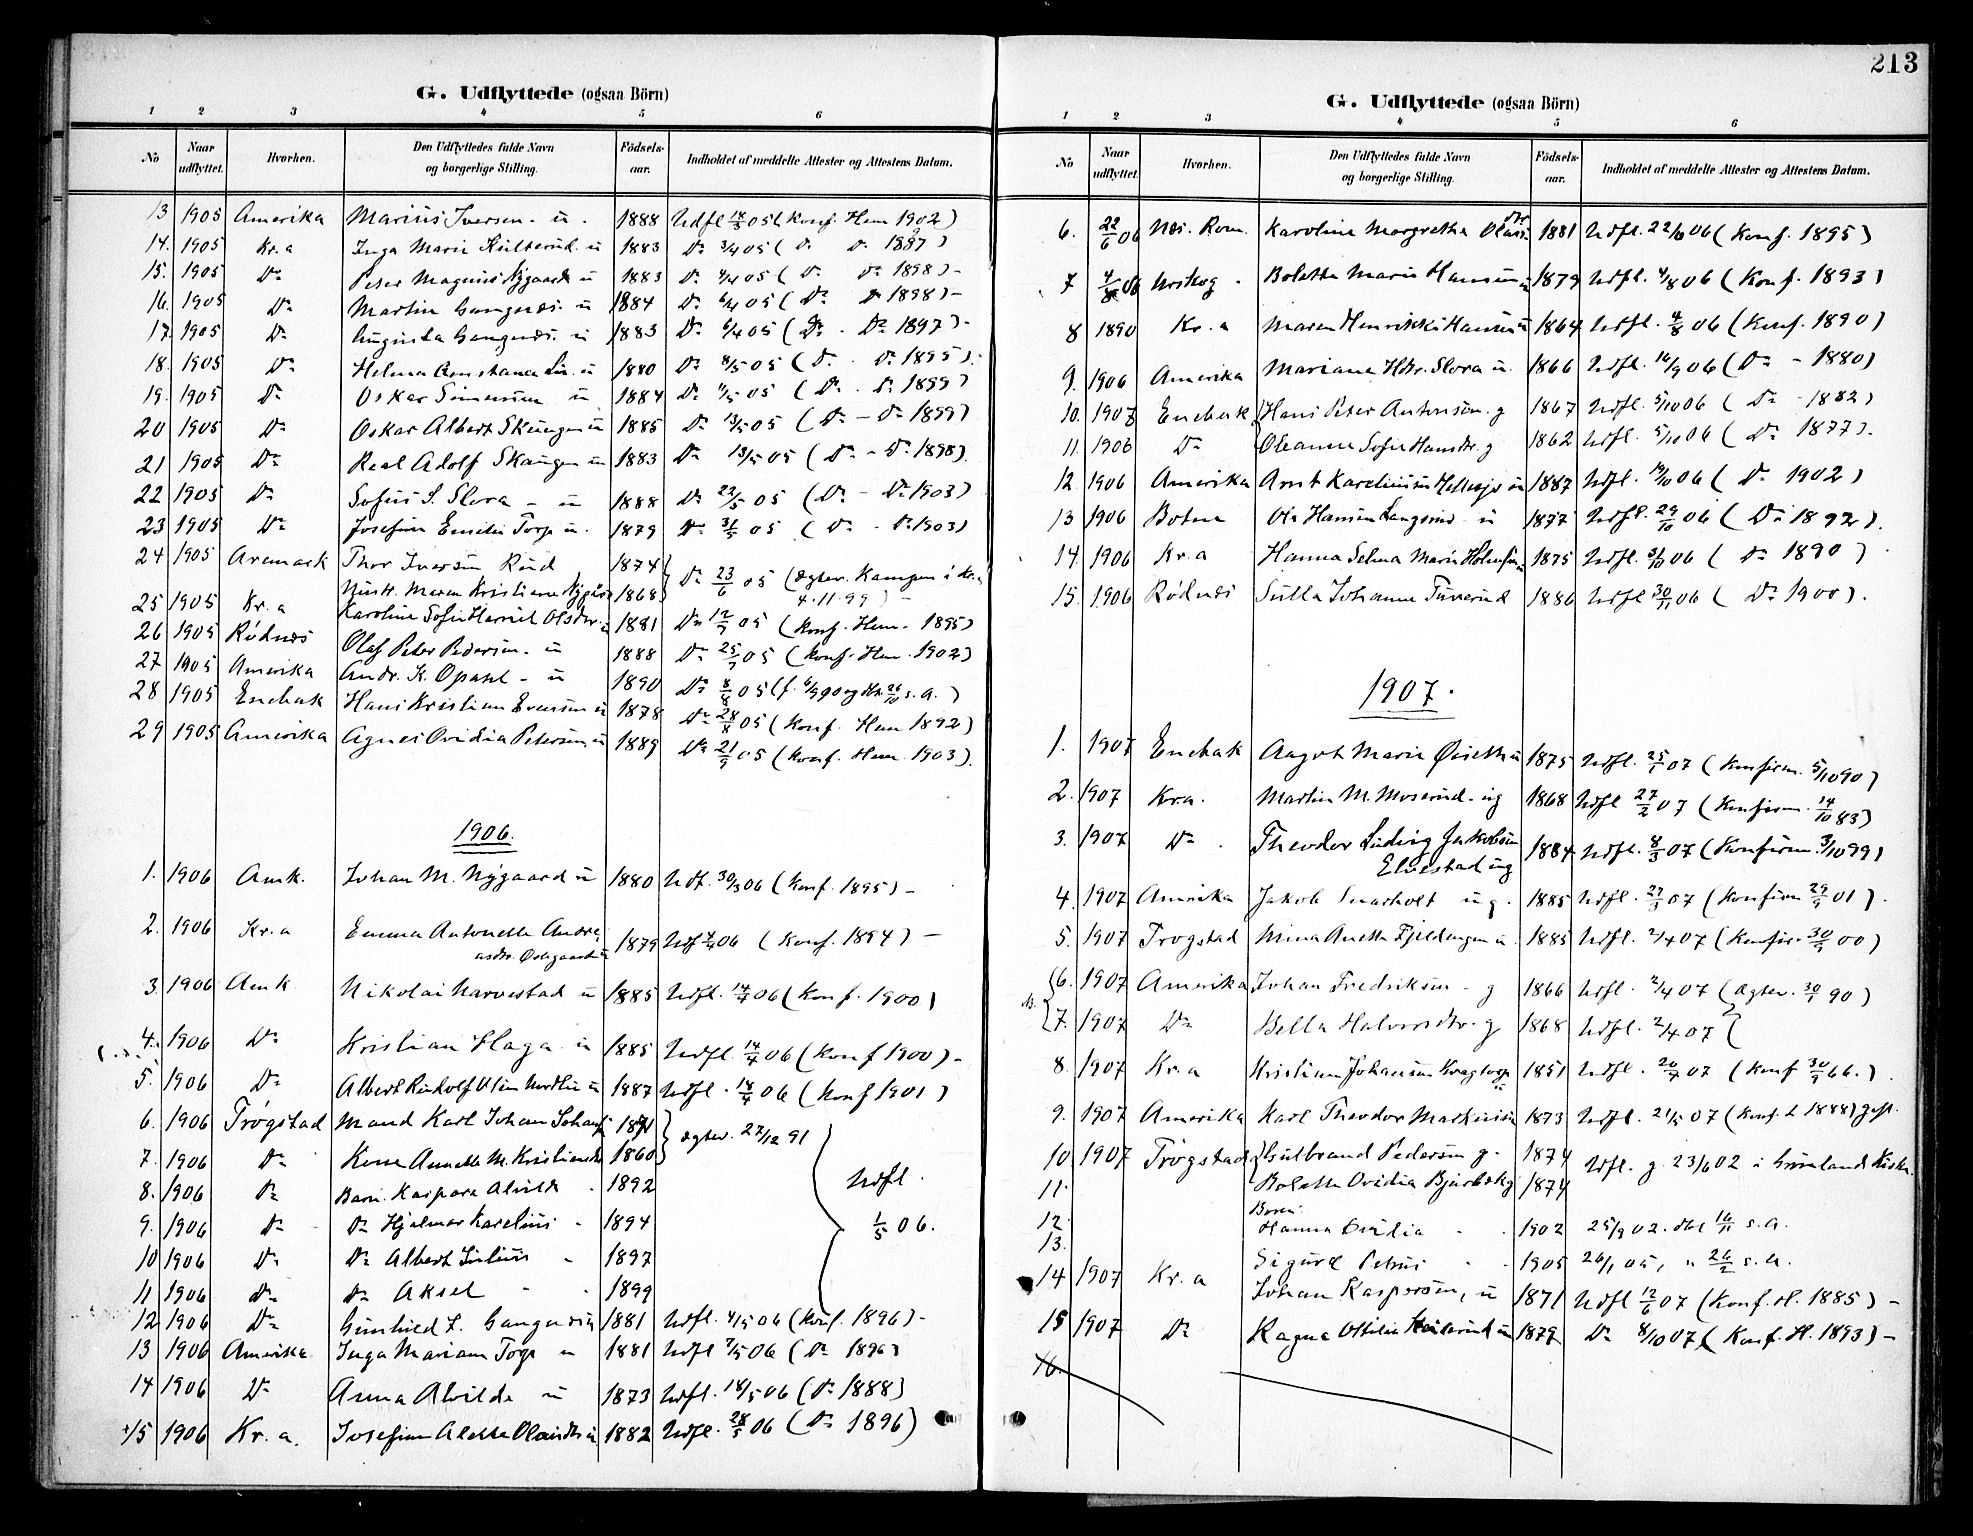 G. Udflyttede (ogsaa Börn)
1 2 3 4 5 6
No Naar udflyttet. Hvorhen. Den Udflyttedes fulde Navn og borgerlige Stilling. Födsels-aar. Indholdet af meddelte Attester og Attestens Datum.
13 1905 Amerika Marius Iversen - u. 1888 Udfl 18/3 05 (Konf. Hem 1902)
14. 1905 Kr.a Inga Marie u 1883 Do 3/4 05 (Do Do 1897)
15. 1905 Do Peter Magnus Nygaard u 1883 Do 4/4 05 (Do Do 1898) -
16. 1905 Do Martin Gangnæs. u 1884 Do 6/4 05 (Do Do 1898) -
17. 1905 Do Augusta Gangnæs. u 1883 Do 6/4 05 (Do . Do 1897) -
18. 1905 Do Helma Constance u 1880 Do 8/5 05 (Do - Do 1895).
19. 1905 Do Oskar Simensen u 1884 Do 11/5 05 (Do . Do 1899)
20 1905 Do Oskar Albert Skaugen u 1885 Do 13/5 05 (Do - Do 1899)
21 1905 Do Adolf Skaugen u 1883 Do 13/5 05 (Do - Do 1898).
22 1905 Do Sofus S. Slora - u 1888 Do 22/5 05 (Do - Do 1903)
23 1905 Do Josefine Emilie Torp u. 1879 Do 31/5 05 (Do - Do 1903)
24 1905 Aremark Thor Iversen Rud 1874 } Do 23/6 05 (ægtev. Kampen i Kr.a
Hust. Maren Kristiane 1868 } 4.11.99) -
25 1905 Kr.a Karoline Sofie Harriet Olsdtr. u 1881 Do 12/7 05 (Konf. Hem - 1895)
26 1905 Rödnæs Olaf Peter Pedersen - u 1888 Do 25/7 05 (Konf. Hem. 1902)
27 1905 Amerika Andr. K. Opsahl - u 1890 Do 8/8 05 (f. 6/9 90 og s.a.)
28 1905 Enebak Hans Kristian Evensen u 1878 Do 28/8 05 (Konf. Hem 1892)
29 1905 Amerika Agnes Ovidia Petersen, u 1889 Do 21/9 05 (Konf. Hem. 1903).
1906.
1. 1906 Amk. Johan M. Nygaard u 1880 Udf. 30/3 06 (Konf. 1895) -
2. 1906 Kr.a Emma Antonette Andre-
asdtr. u 1879 Udf 06 (Konf. 1894) -
3. 1906 Amk. Nikolai Narvestad u 1885 Udfl. 14/4 06 (Konf. 1900)
4. 1906 Do Kristian Haga u 1885 Udfl. 14/4 06 (Konf 1900) -
5. 1906 Do Albert Rudolf u 1887 Udfl. 18/4 06 (Konf 1901)
6. 1906 Trögstad Mand Karl Johan 1871 } ægtev. 27/12 91
7. 1906 Do Kone Annette M. 1860 }
8. 1906 Do Barn. Kaspara Alvilde 1892 Udfl.
9. 1906 Do Do Hjalmar Karelius - 1894 1/5 06.
10 1906 Do Do Albert Julius - 1897
11 1906 Do Do Aksel - - 1899
12 1906 Do Gunhild L. u 1881 Udfl. 4/5 06 (Konf. 1896) -
13 1906 Amerika Inga Mariam Torp u 1881 Udfl 7/5 06 (Do 1896)
14 1906 Do Anna Alvilde u 1873 Udfl. 18/5 06 (Do 1888)
15 1906 Kr.a. Josefine Alette u 1882 Udfl. 28/5 06 (Do 1896)
213
G. Udflyttede (ogsaa Börn)
1 2 3 4 5 6
No Naar udflyttet Hvorhen. Den Udflyttedes fulde Navn og borgerlige Stilling. Födsels-aar. Indholdet af meddelte Attester og Attestens Datum.
6. 22/6 06 Næs. Rom. Karoline Margrethe Olsdtr 1881 Udfl. 22/6 06 (Konf. 1895)
7 4/8 06 Urskog - Bolette Marie Hansen u 1879 Udfl. 4/8 06 (Konf. 1893)
8 1890 Kr.a Maren Henrikke Hansen u 1864 Udfl. 4/8 06 (Konf. 1890)
9. 1906 Amerika Mariane Slora u. 1866 Udfl. 14/9 06 (Do - 1880)
10. 1907 Enebak Hans Peter Antonsen. g 1867 Udfl. 5/10 06 (Do - 1882)
11. 1906 Do Oleanne Sofie Hansdtr. g 1862 Udfl. 5/10 06 (Do 1877).
12 1906 Amerika Arnt Karelius u 1887 Udfl. 19/10 06 (Do 1902)
13 1906 Botne Ole Hansen Langsrud - u 1877 Udfl. 29/10 06 (Do 1892).
14. 1906 Kr.a Hanna Selma Marie u 1875 Udfl. 06 (Do 1890)
15. 1906 Rödnæs Julla Johanne Tuverud 1886 Udfl 30/11 06 (Do 1900).
1907.
1. 1907 Enebak Aagot Marie u 1875 Udfl. 25/1 07 (Konfirm. 5/10 90)
2. 1907 Kr.a. Martin M. Moserud - ug 1868 Udfl 27/2 07 (Konfirm. 14/10 83)
3. 1907 Do . Theodor Ludvig Jakobsen
Elvestad ug 1884 Udfl. 8/3 07 (Konfirm. 3/10 99)
4. 1907 Amerika Jakob Snarholt ug. 1885 Udfl. 27/3 07 (Konfirm 29/9 01).
5. 1907 Trøgstad Mina Anette Fjeldengen u. 1885 Udfl. 2/4 07 (Konfir. 30/9 00)
6. 1907 Amerika Johan Fredriksen - g 1866 Udfl. 2/4 07 (Ægtev. 30/1 90)
7. 1907 Do Bella Halvorsdtr. g 1868 Udfl. 2/4 07 {
8. 1907 Kr.a Kristian Johansen Kragtorp u 1851 Udfl. 20/4 07 (Konf 30/9 66.).
9. 1907 Amerika Karl Theodor u 1873 Udfl. 21/5 07 (Konf. 1888)
10. 1907 Trögstad Gulbrand Pedersen g. 1874 Udfl. g. 23/6 02 i
11. Bolette Ovidia Bjerbæk g 1874
Born:
12. Hanna Ovilia - . 1902 25/9 02. dbt 16/11 s.a.
13. Sigurd Petrus - . 1905 26/1 05, " 26/2 s.a.
14 1907 Kr.a Johan Kaspersen, u 1871 Udfl 12/6 07 (Konf. H. 1885) -
15 1907 Do Ragna Ottilie u 1879 Do 8/10 07 (Konf. H. 1893) -
16.